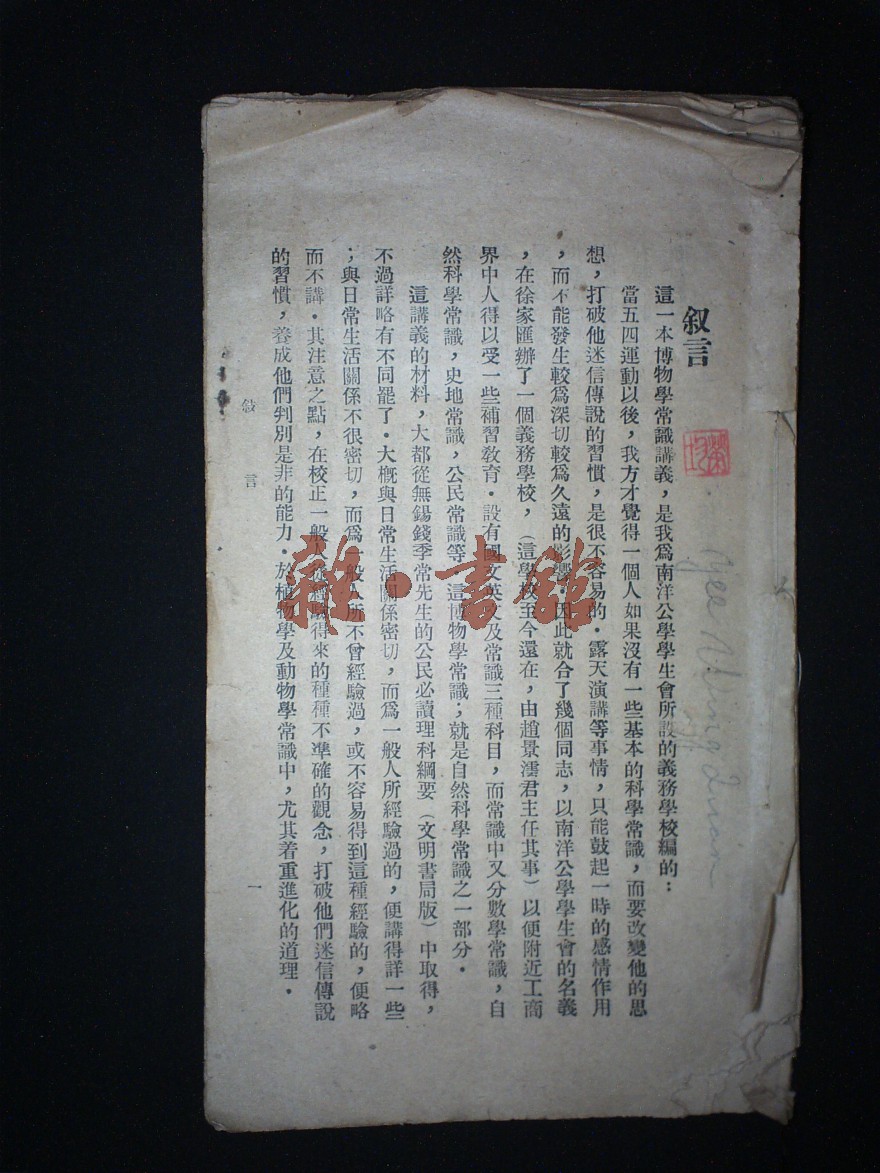 叙言
這一本博物學常識講義，是我爲南洋公學學生會所設的義務學校編的：
當五四運動以後，我方才覺得一個人如果沒有一些基本的科學常識，而要改變他的思
想，打破他迷信傳說的習慣，是很不容易的．露天演講等事情，只能鼓起一時的感情作用
，而不能發生較爲深切較爲久遠的影響．因此就合了幾個同志，以南洋公學學生會的名義
，在徐家匯辦了一個義務學校，（這學校至今還在，由趙景澐君主任其事）以便附近工商
界中人得以受一些補習教育．設有國文英文及常識三種科目，而常識中又分數學常識，自
然科學常識，史地常識，公民常識等．這博物學常識；就是自然科學常識之一部分．
這講義的材料，大都從無錫錢季常先生的公民必讀理科綱要（文明書局版）中取得，
不過詳略有不同罷了．大概與日常生活關係密切，而爲一般人所經驗過的，便講得詳一些
；與日常生活關係不很密切，而爲一般人所不曾經驗過，或不容易得到這種經驗的，便略
而不講．其注意之點，在校正一般人從經驗得來的種種不準確的觀念，打破他們迷信傳說
的習慣，養成他們判別是非的能力．於植物學及動物學常識中，尤其着重進化的道理．
敍言
一
雜·書館